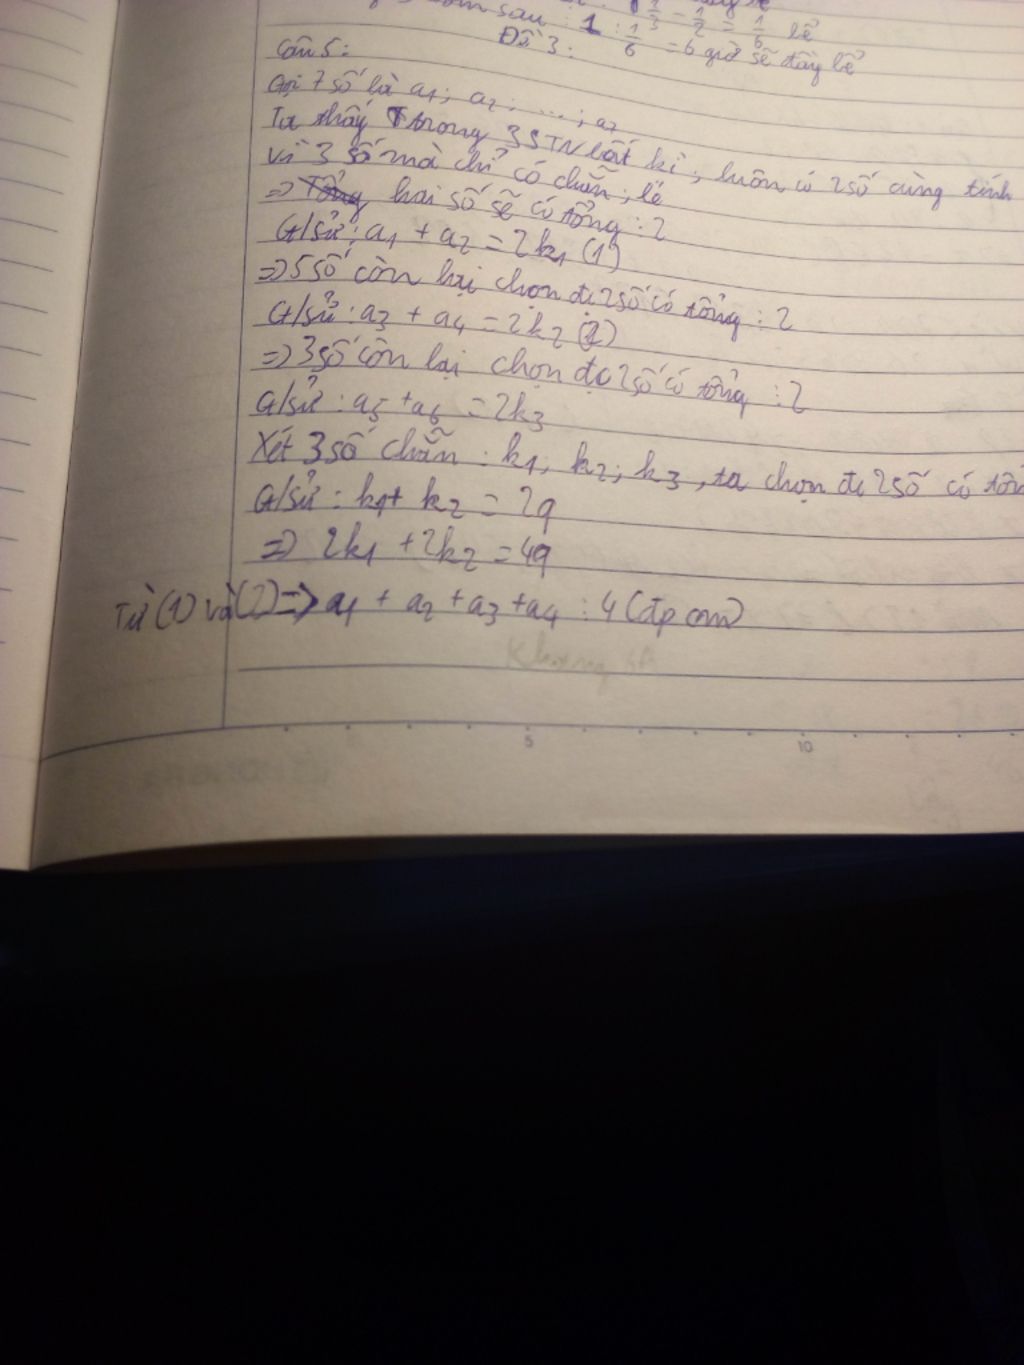 sau : 1 : 1/6 = 6 giờ sẽ đầy bể
1/3 - 1/2 = 1/6 bể
Đề 3:
Câu 5:
Gọi 7 số là a1; a2; ...; a7
Ta thấy trong 3 STN bất kì, luôn có 2 số cùng tính
vì 3 số mà chỉ có chẵn; lẻ
=> Tổng hai số sẽ có tổng : 2
G/sử: a1 + a2 = 2k1 (1)
=> 5 số còn lại chọn đc 2 số có tổng : 2
G/sử: a3 + a4 = 2k2 (2)
=> 3 số còn lại chọn đc 2 số có tổng : 2
G/sử: a5 + a6 = 2k3
Xét 3 số chẵn : k1; k2; k3, ta chọn đc 2 số có tổn
G/sử: k1 + k2 = 2q
=> 2k1 + 2k2 = 4q
Từ (1) và (2) => a1 + a2 + a3 + a4 : 4 (đpcm)
5 10